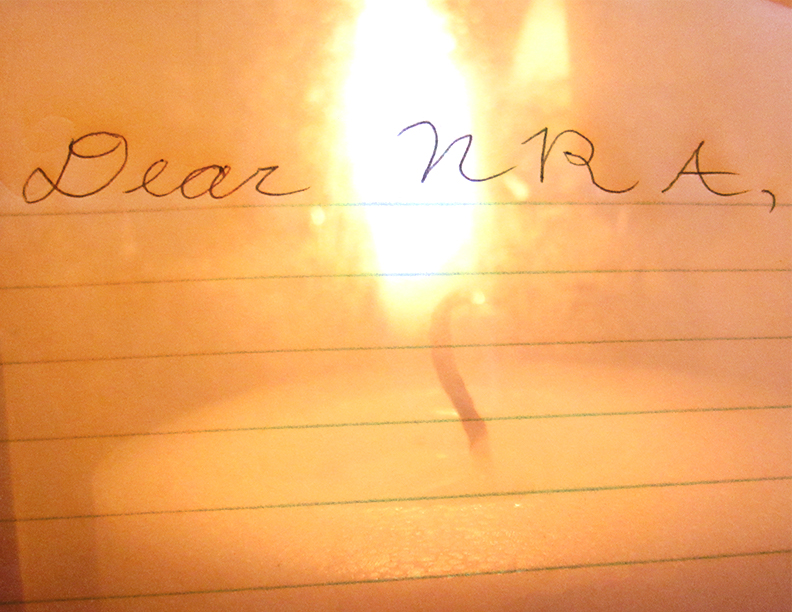 Dear NRA,